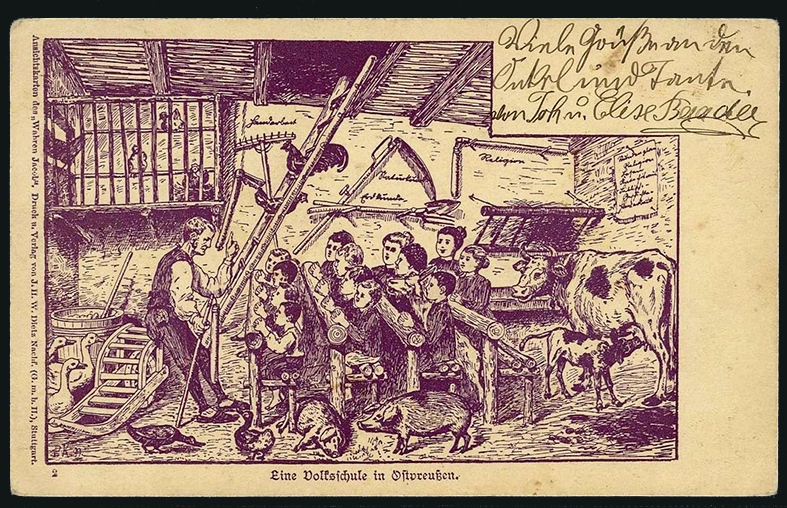 Viele Grüße an den
Onkel und Tante.
von Joh u. Elise Baader
Ansichtskarten des „Wahren Jacob“, Druck u. Verlag von J. H. W. Dietz Nachf. (G. m. b. H.), Stuttgart.
Handarbeit
Naturkunde
Erdkunde
Religion
Stundenplan
Religion
2
Eine Volksschule in Ostpreußen.